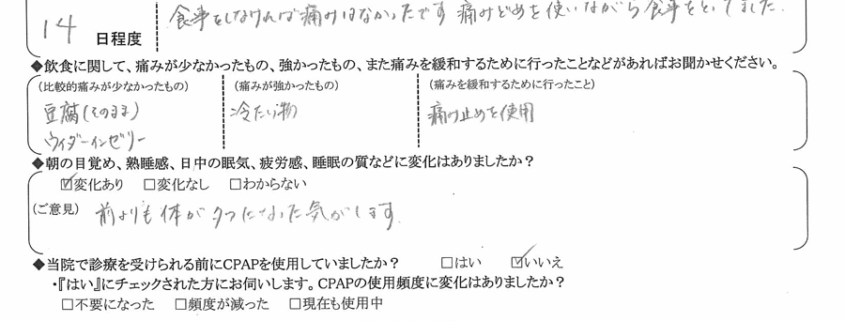 食事をしなければ痛みはなかったです 痛みどめを使いながら食事をとってました.
14 日程度
◆飲食に関して、痛みが少なかったもの、強かったもの、また痛みを緩和するために行ったことなどがあればお聞かせください。
(比較的痛みが少なかったもの) (痛みが強かったもの) (痛みを緩和するために行ったこと)
豆腐(そのまま) 冷たい物 痛み止めを使用
ウイダーインゼリー
◆朝の目覚め、熟睡感、日中の眠気、疲労感、睡眠の質などに変化はありましたか?
☑変化あり □変化なし □わからない
(ご意見) 前よりも体がラクになった気がします.
◆当院で診療を受けられる前にCPAPを使用していましたか? □はい ☑いいえ
・『はい』にチェックされた方にお伺いします。CPAPの使用頻度に変化はありましたか?
□不要になった □頻度が減った □現在も使用中